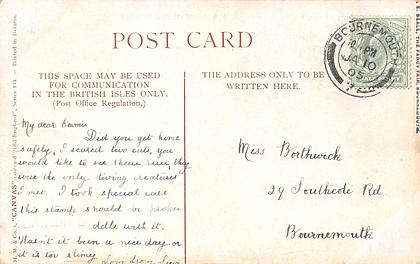 POST CARD
THIS SPACE MAY BE USED
FOR COMMUNICATION
IN THE BRITISH ISLES ONLY.
(Post Office Regulation.)
THE ADDRESS ONLY TO BE
WRITTEN HERE.
BOURNEMOUTH
PM
JA 10
05
My dear
Did you get home
safely, I scared two cats, you
would like to see them run, they
were the only living creatures
I met. I took special care
this stamp should be
with it.
Hasn't it been a nice day or
it is too slimy
Love from
Miss Borthwick
29 Southcote Rd
Bournemouth
"CANVAS"
Printed in Bavaria.